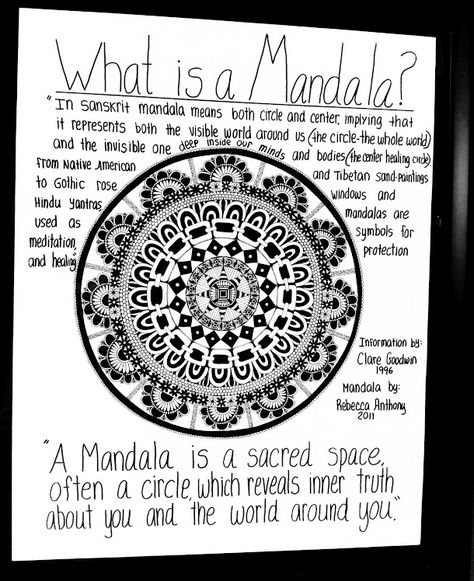 What is a Mandala?
"In sanskrit mandala means both circle and center, implying that
it represents both the visible world around us (the circle-the whole world)
and the invisible one deep inside our minds and bodies (the center healing circle)
from Native American and Tibetan sand-paintings
to Gothic rose windows and
Hindu yantras mandalas are
used as symbols for
meditation, protection
and healing."
Information by:
Clare Goodwin
1996
Mandala by:
Rebecca Anthony
2011
"A Mandala is a sacred space,
often a circle, which reveals inner truth
about you and the world around you."